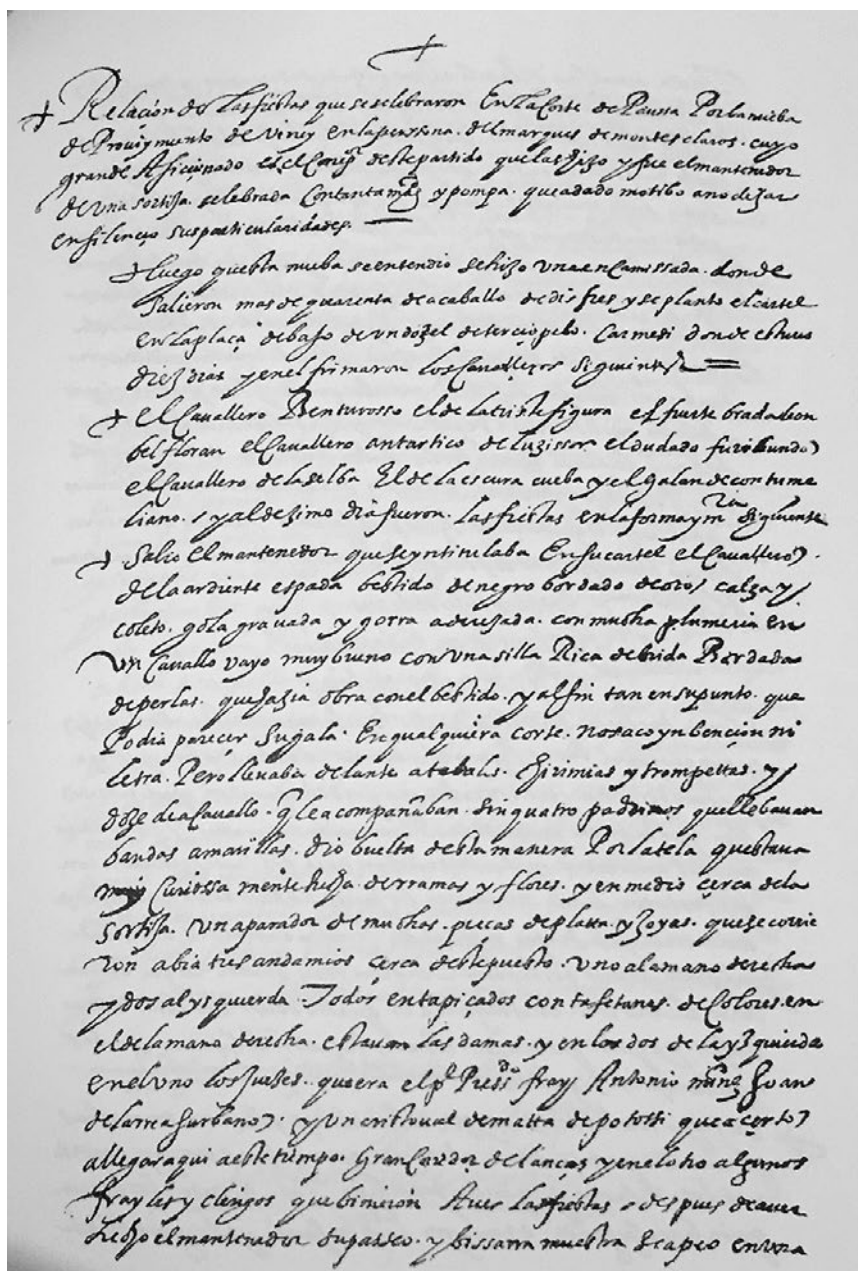 Relacion de las fiestas que se selebraron En la Corte de Paussa Por la nueba
de Proviymiento de Virrey en la perssona. del marques de montes claros. cuyo
grande Aficionado es el Corregr deste partido que las hizo y fue el mantenedor
de una sortija. selebrada Con tanta magd y pompa. que a dado motibo a no dejar
en silençio sus particularidades.
Luego questa nueba se entendio se hizo una encamissada. donde
salieron mas de quarenta de a caballo de disfres y se planto el cartel
en la plaça debajo de un dozel de terciopelo. Carmesi donde estuuo
diez dias y en el firmaron los Cavalleros Siguientes
el Cavallero Benturosso el de la triste figura el fuerte bradaleon
belfloran el Cavallero antartico de luzissor el dudado furibundo
el Cavallero de la selba El de la escura cueba y el galan de contume
liano. y al dezimo dia fueron. las fiestas en la forma y mra siguiente
Salio El mantenedor que se yntitulaba En su cartel el Cavallero
de la ardiente espada bestido de negro bordado de oro calza y
coleto. gola grauada y gorra aderezada. con mucha plumeria en
un Cavallo vayo muy bueno con una silla Rica de brida Bordada
de perlas. que hazia obra con el bestido. y al fin tan en su punto. que
Podia parecer Su gala. En qualquiera corte. no saco ynbencion ni
letra. Pero llevaba delante atabales. chirimias y trompettas. y
doze de a Cavallo. q le acompañaban. sin quatro padrinos que llebauan
bandas amarillas. dio buelta desta manera Por la tela questaua
muy Curiossa mente hecha de rramas y flores. y en medio çerca de la
Sortija. un aparador de muchas. pieças de platta. y joyas. que se corrie
ron abia tres andamios çerca deste puesto. uno a la mano derecha
y dos al ysquierda Todos entapiçados con tafetanes. de Colores. en
el de la mano derecha. estavan las damas. y en los dos de la yzquierda
en el uno los jueses. que era el pe Pressdo fray Antonio mrnz Joan
de larrea surbano. y un cristoval de matta de potossi que açerto
a llegar aqui a este tiempo. gran Corredor de lanças y en el otro algunos
frayles y clerigos que binieron A ver las fiestas despues de aver
hecho el mantenedor su passeo. y bissarra muestra se apeo en una